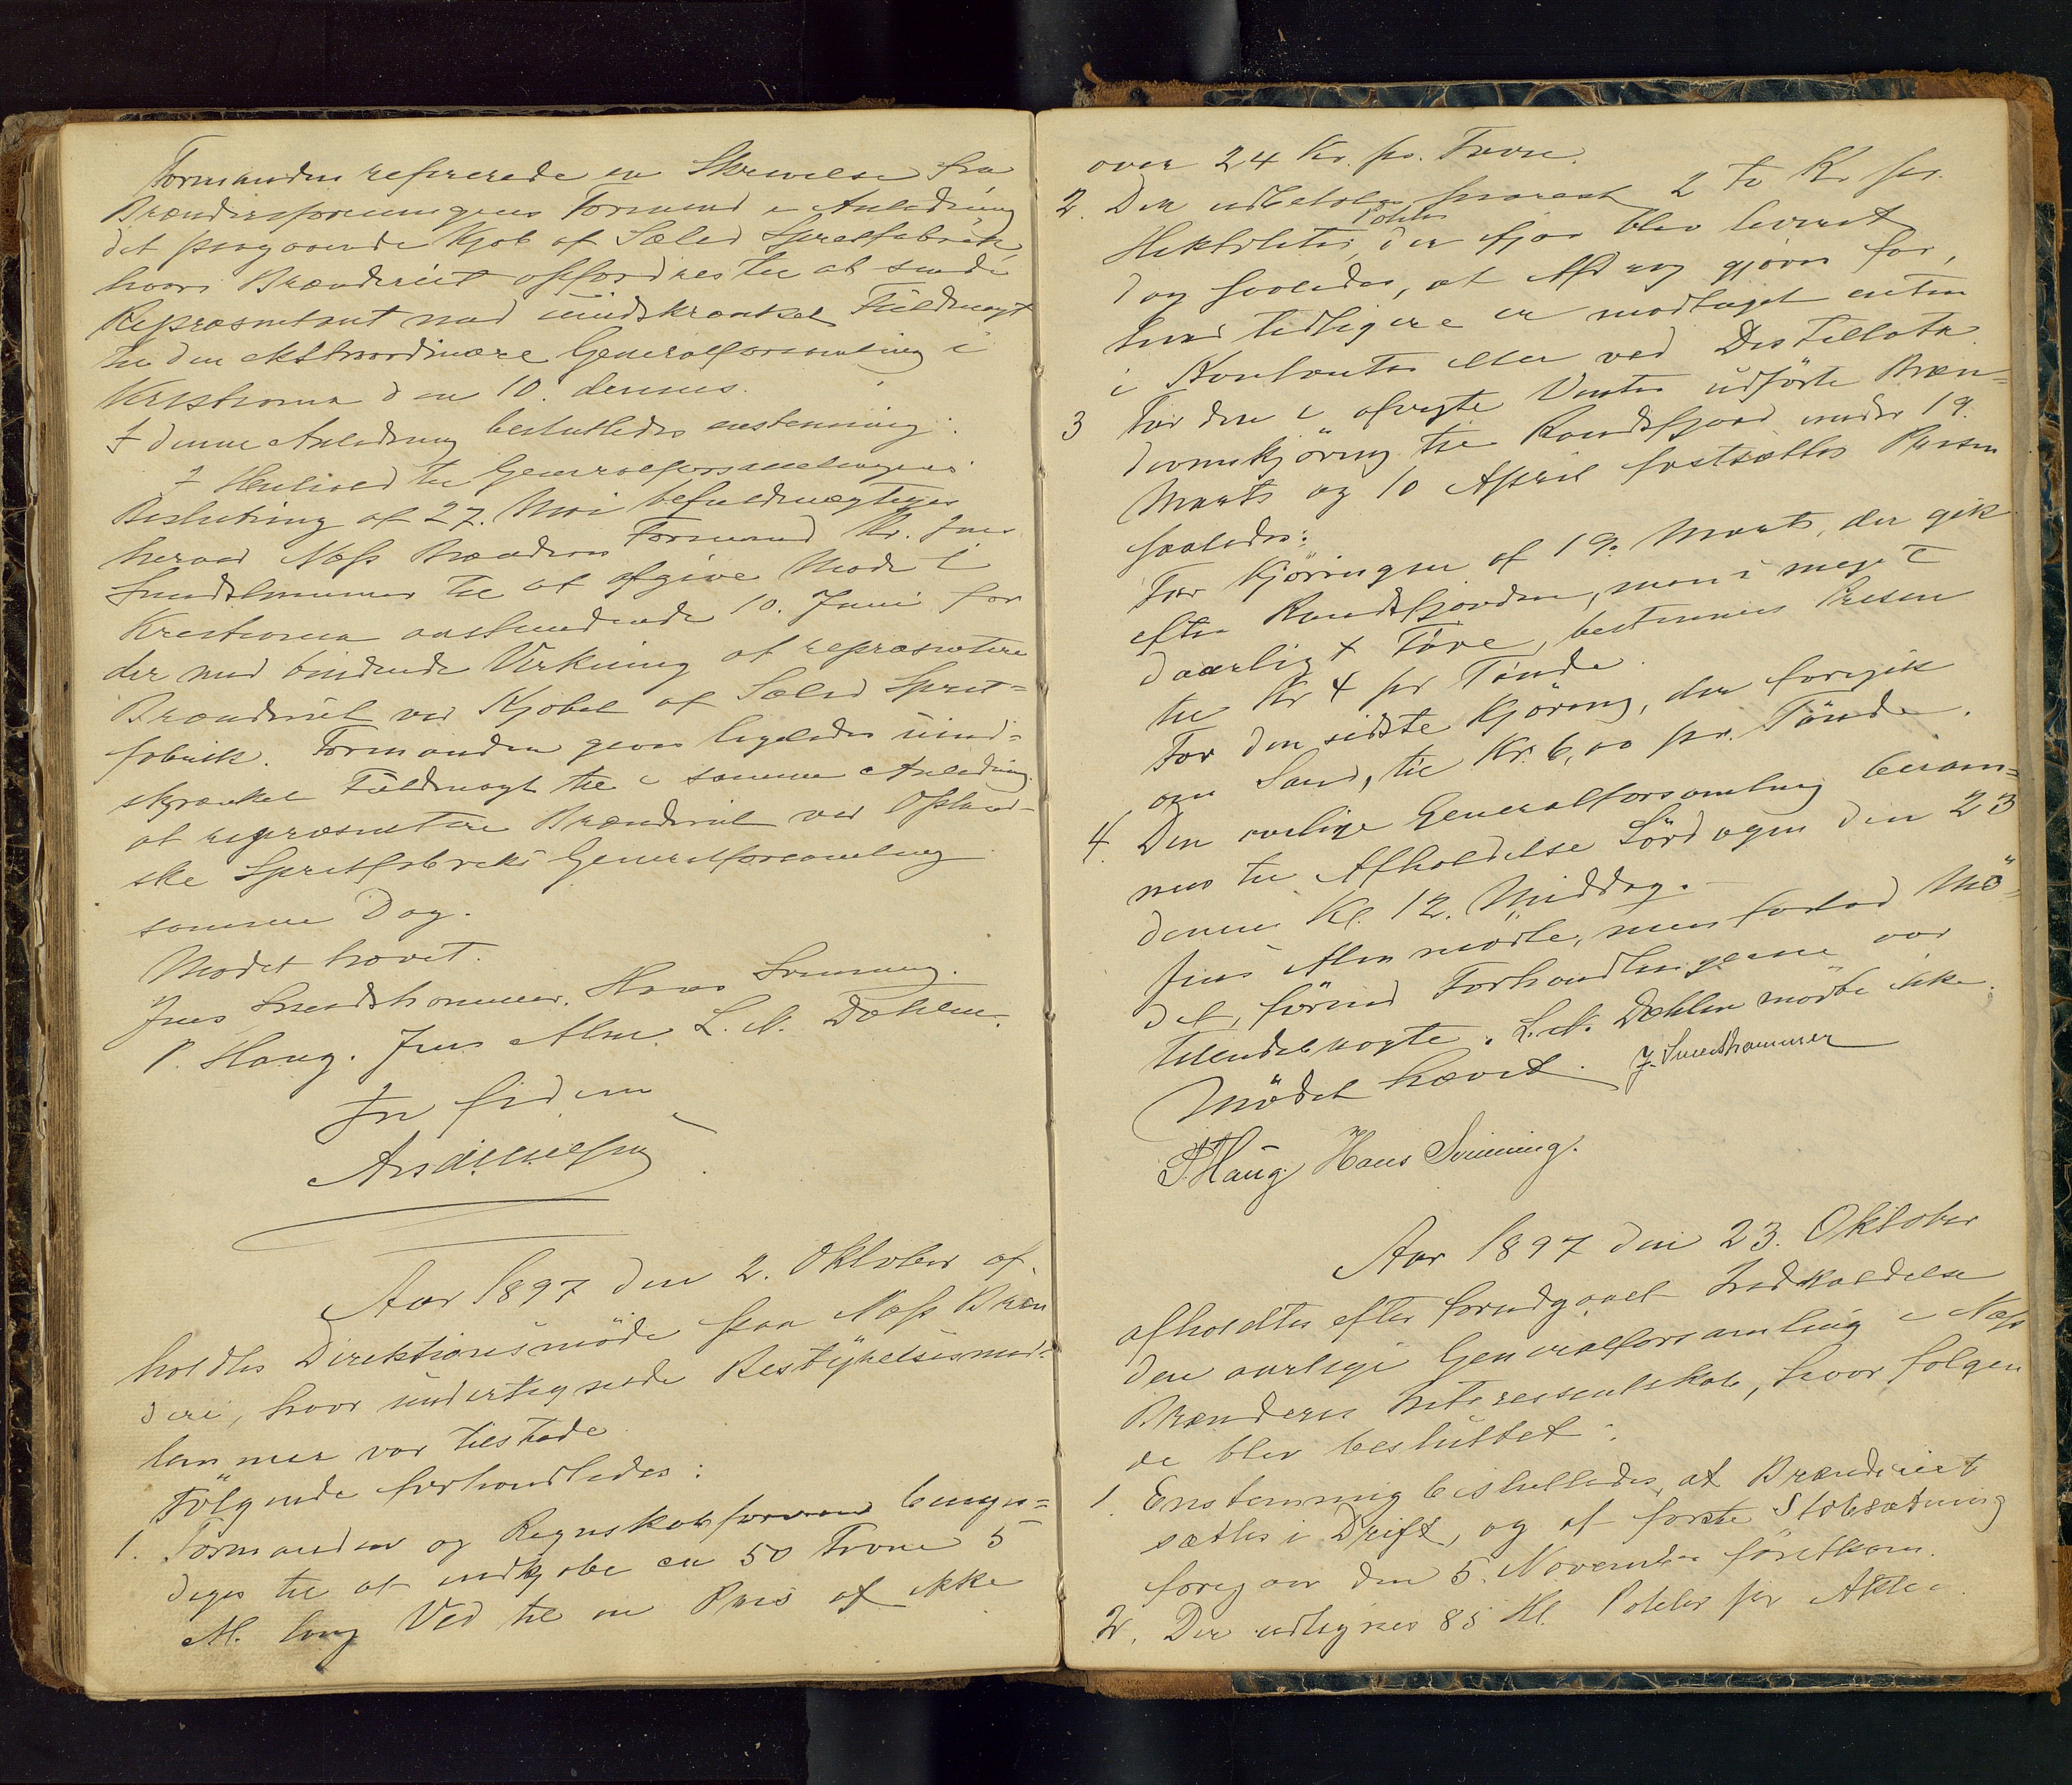 Formanden refererede en Skrivelse fra
Brænderiforeningens Formand i Anledning
det paagaaende Kjøb af Sælid Spritfabrik,
hvori Brænderiet opfordres til at sende
Repræsentant med uindskrænket Fuldmagt
til den ekstraordinære Generalforsamling i
Kristiania den 10. dennes.
I denne Anledning besluttedes enstemmig:
I Henhold til Generalforsamlingens
Beslutning af 27. Mai befuldmægtiges
herved Næss Brænderis Formand Hr. Jens
Smedshammer til at afgive Møde i
Kristiania anstundende 10. Juni for
der med bindende Virkning at repræsentere
Brænderiet ved Kjøbet af Sælid Sprit=
fabrik. Formanden gives ligeledes uind=
skrænket Fuldmagt til i samme Anledning
at repræsentere Brænderiet ved Opland-
ske Spritfabriks Generalforsamling
samme Dag.
Mødet hævet.
Jens Smedshammer. Hans Svinning.
P. Haug. Jens Alm. L. A. Dæhlen.
In fidem
Aar 1897 den 2. Oktober af-
holdtes Direktionsmøde paa Næss Bræn
deri, hvor undertegnede Bestyrelsesmed=
lemmer var tilstede
Følgende forhandledes:
1. Formanden og Regnskabsføreren bemyn=
diges til at indkjøbe ca 50 Favne 5
M. lang Ved til en Pris af ikke
over 24 Kr. pr. Favn.
2. Der udbetales snarest 2 to Kr pr.
Poteter
Hektoliter, der ifjor blev leveret
dog saaledes, at Afdrag gjøres for,
hvad tidligere er modtaget enten
i Kontanter eller ved Destillata
3 For den i afvigte Vinter udførte Bræn=
devinskjøring til Randsfjord under 19.
Marts og 10 April fastsættes Prisen
saaledes:
For Kjøringen af 19. Marts, der gik
efter Randsfjorden, men i meget
daarligt Føre, bestemmes Prisen
til Kr 4 pr Tønde.
For den sidste Kjøring, der foregik
om Land, til Kr. 6,00 pr. Tønde.
4. Den aarlige Generalforsamling beram=
mes til Afholdelse Lørdagen den 23
dennes Kl. 12. Middag.
Jens Alm mødte, men forlod Mø=
det, førend Forhandlingerne var
tilendebragte. L. A. Dæhlen mødte ikke.
Mødet hævet. J. Smedshammer
P. Haug. Hans Svinning.
Aar 1897 den 23. Oktober
afholdtes efter forudgaaet Indkaldelse
den aarlige Generalforsamling i Næss
Brænderis Interessentskab, hvor følgen
de blev besluttet:
1. Enstemmig besluttedes, at Brænderiet
sættes i Drift, og at første Støbsætning
foregaar den 5. November førstkom.
2. Der udlignes 85 Hl. Poteter pr Aktie.